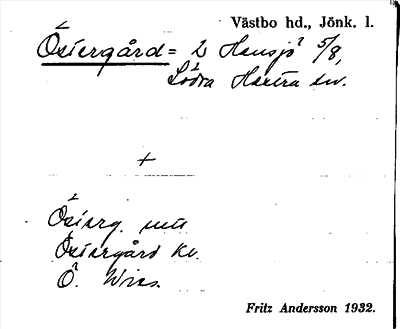 Västbo hd., Jönk. l.
Östergård = 2 Hensjö 5/8,
Södra Hestra sn.
+
Österg. mtl
Östergård Kv.
Ö. Wiss.
Fritz Andersson 1932.